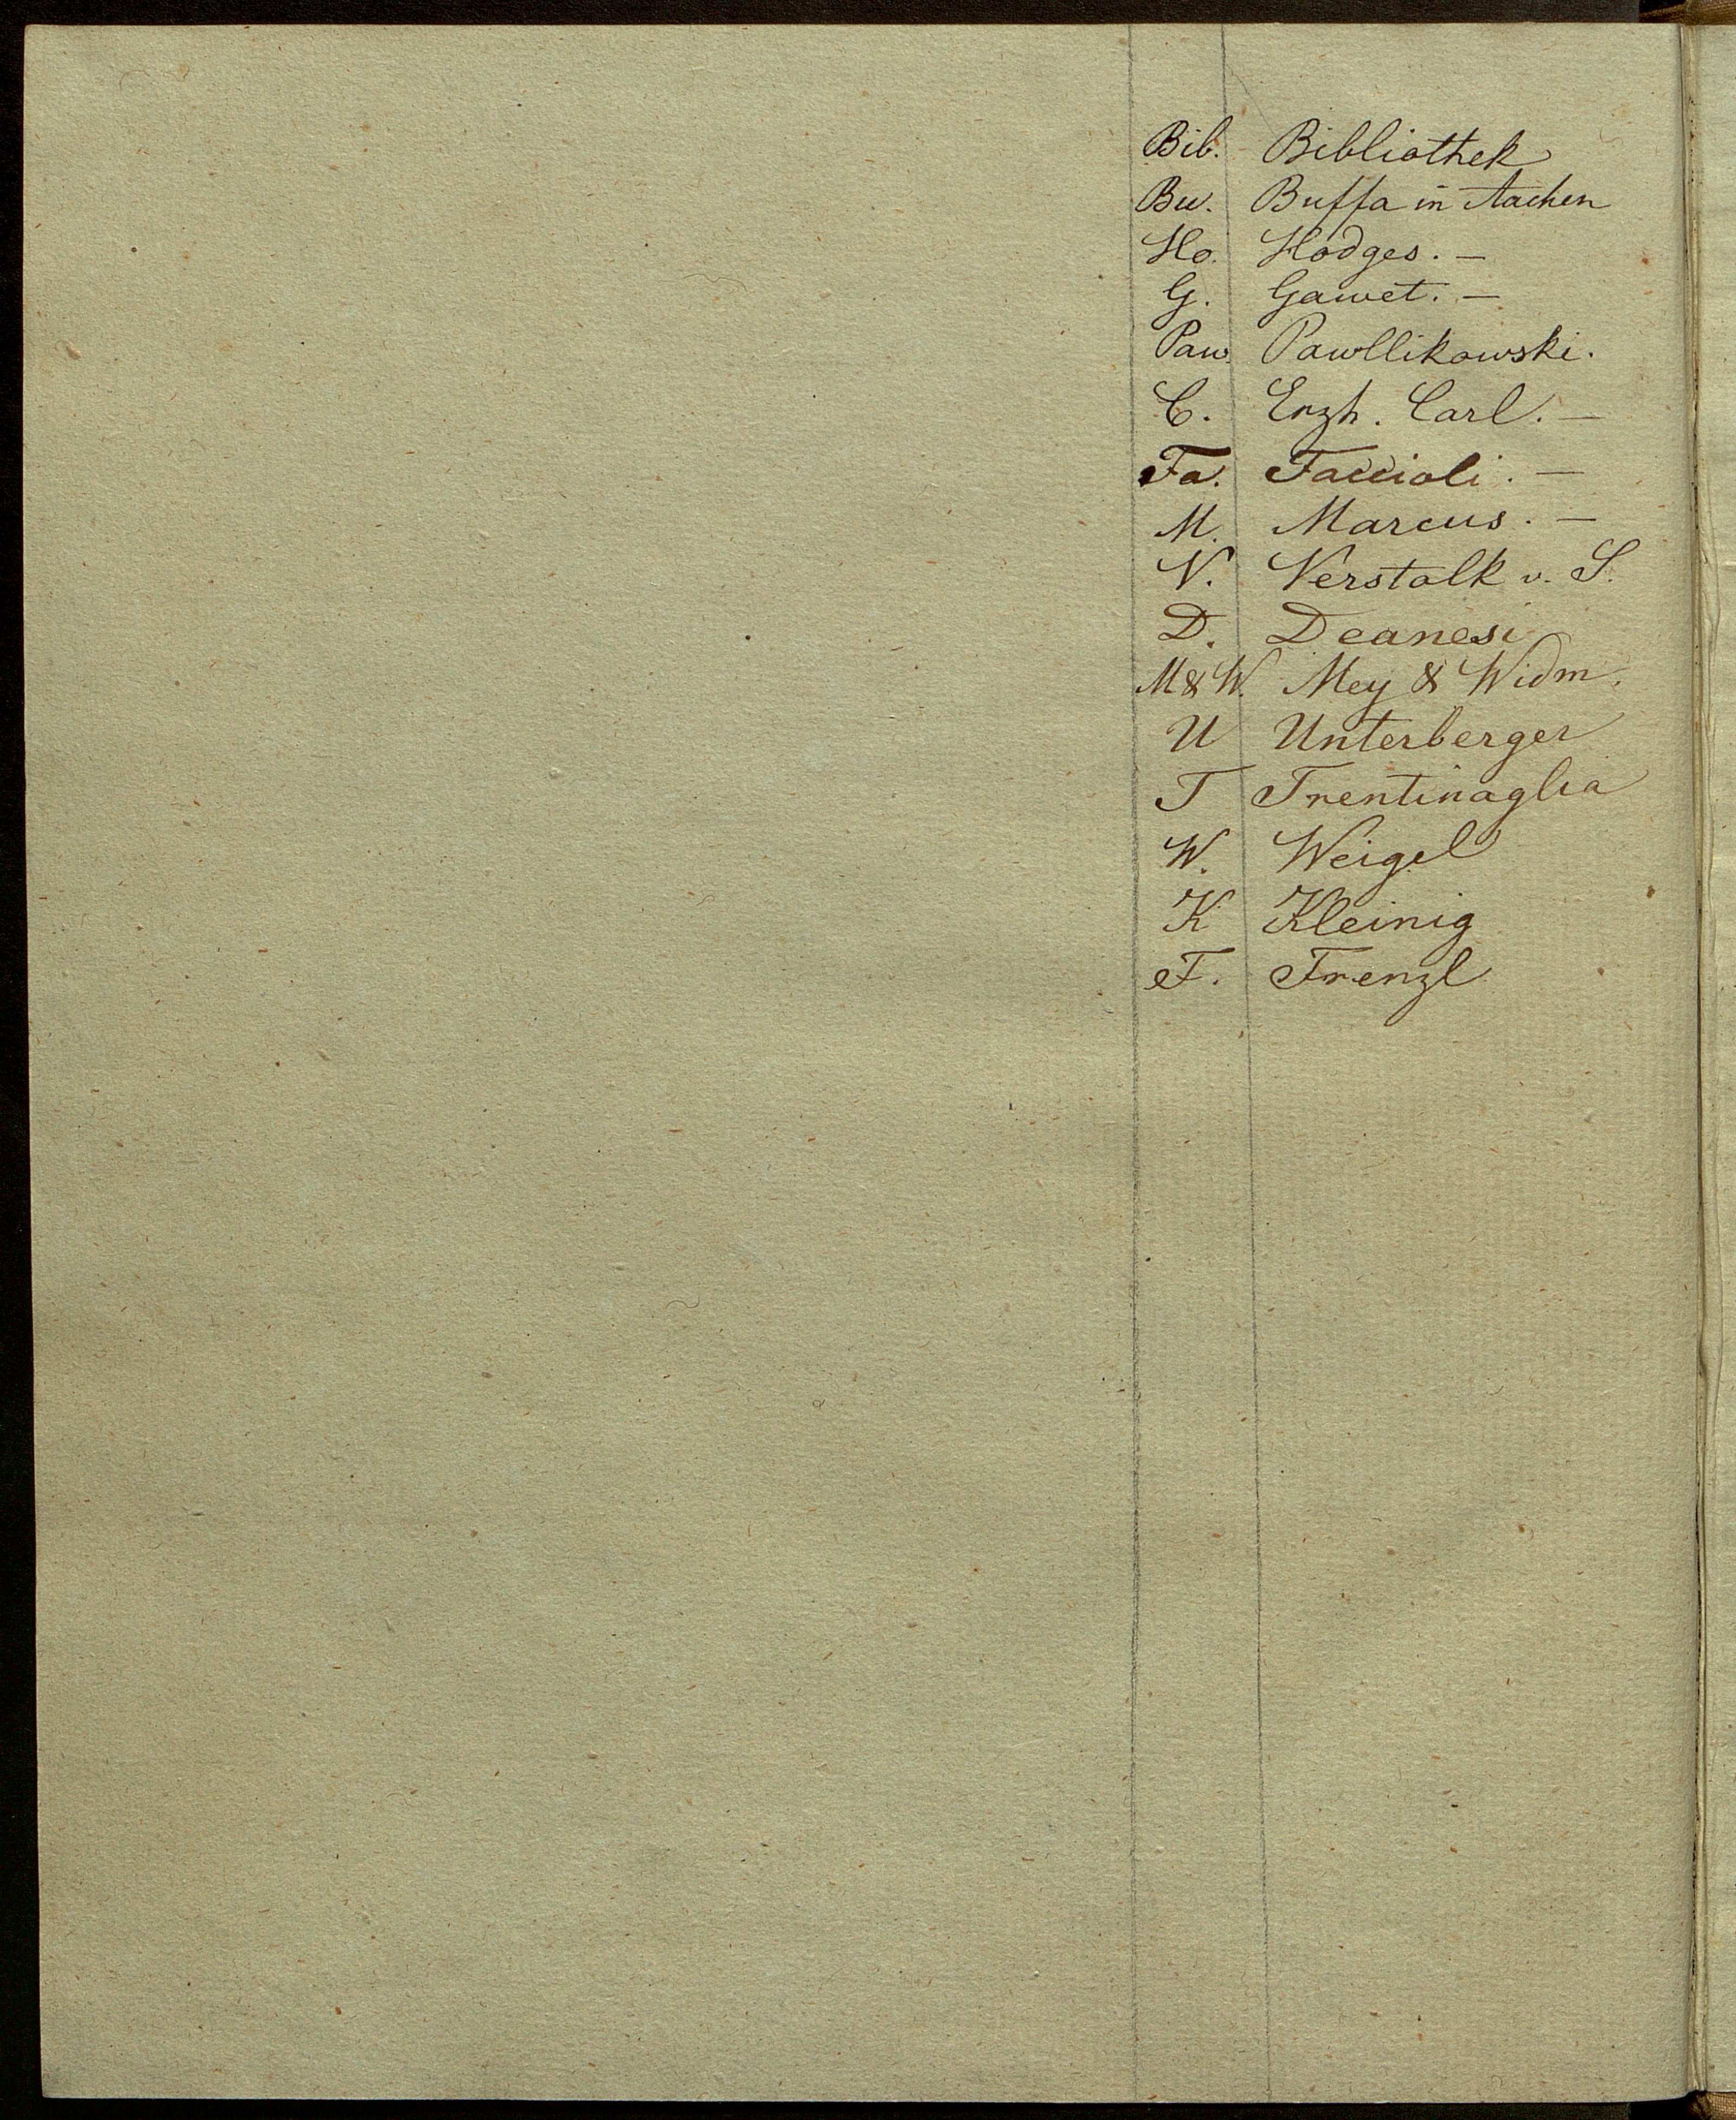 Bib. Bibliothek
Bu. Buffa in Aachen
Ho. Hodges. —
G. Gawet. —
Paw. Pawllikowski.
C. Erzh. Carl. —
Fa. Faccioli. —
M. Marcus. —
V. Verstolk v. S.
D. Deanesi
M & W. Mey & Widm.
U Unterberger
T Trentinaglia
W. Weigel
K Kleinig
F. Frenzl